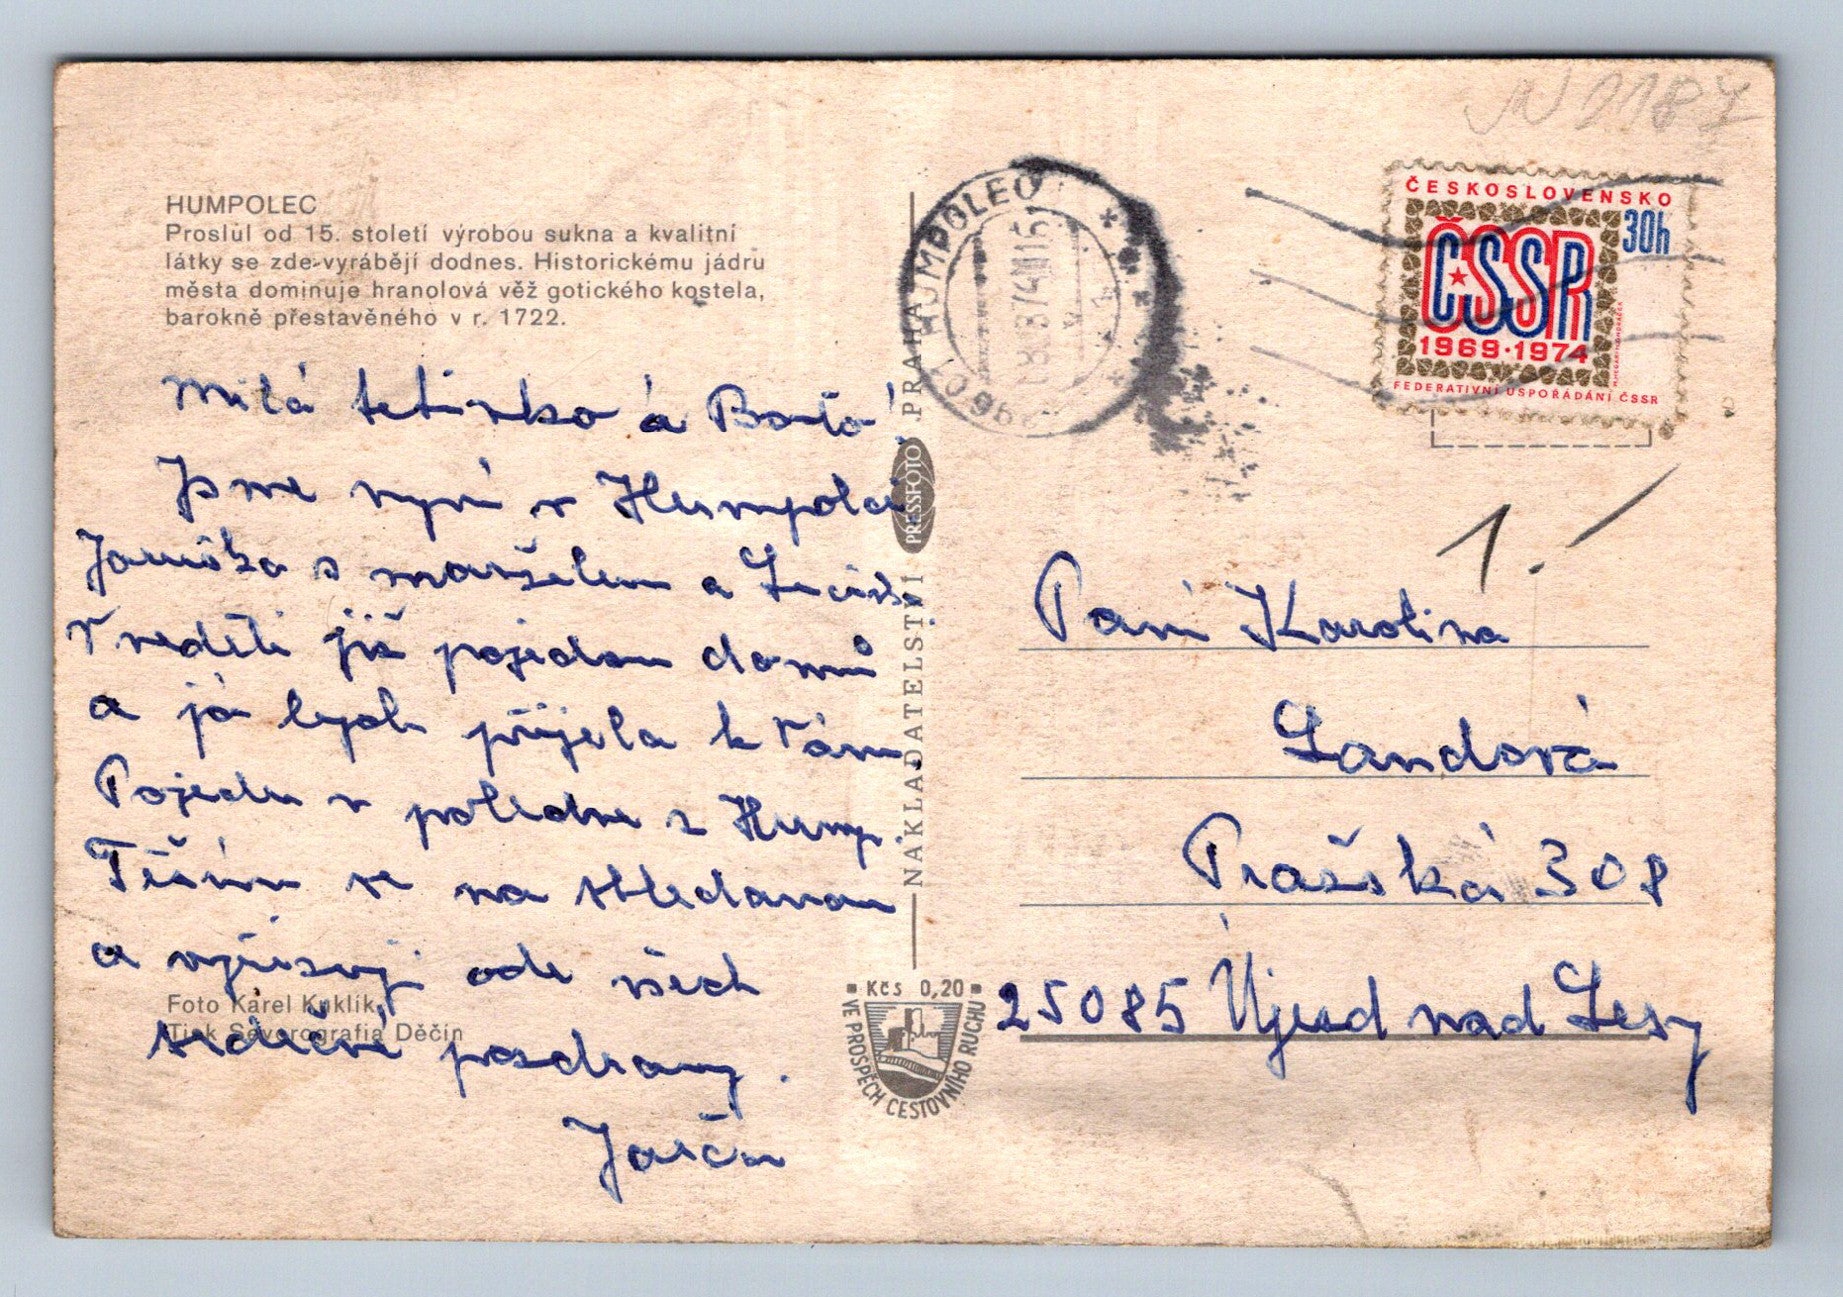 N 1187
HUMPOLEC
Proslul od 15. století výrobou sukna a kvalitní
látky se zde vyrábějí dodnes. Historickému jádru
města dominuje hranolová věž gotického kostela,
barokně přestavěného v r. 1722.
Milá tetinko a
Jsme nyní v Humpolci
s manželem a
V neděli již pojedou domů
a já bych přijela k Vám.
Pojedu v poledne z Hump.
Těším se na shledanou
a vyřizuji ode všech
srdečné pozdravy.
Foto Karel Kuklík
Tisk Severografia Děčín
NAKLADATELSTVÍ PRESSFOTO PRAHA
Kčs 0,20
VE PROSPĚCH CESTOVNÍHO RUCHU
396 01 HUMPOLEC 1
ČESKOSLOVENSKO
30h
ČSSR
1969·1974
FEDERATIVNÍ USPOŘÁDÁNÍ ČSSR
1.
Paní Karolina
Landová
Pražská 308
25085 Újezd nad Lesy